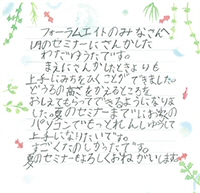 フォーラムエイトのみなさんへ
1月のセミナーにさんかした
わだいゆうたです。
まえにさんかしたときよりも
上手にみちをひくことができました。
どうろの高さをかえるところを
おしえてもらってできるようになりま
した。夏のセミナーまでにお家の
パソコンでもっとれんしゅうして
上手になりたいです。
すごくたのしかったです。
夏のセミナーもよろしくおねがいします。